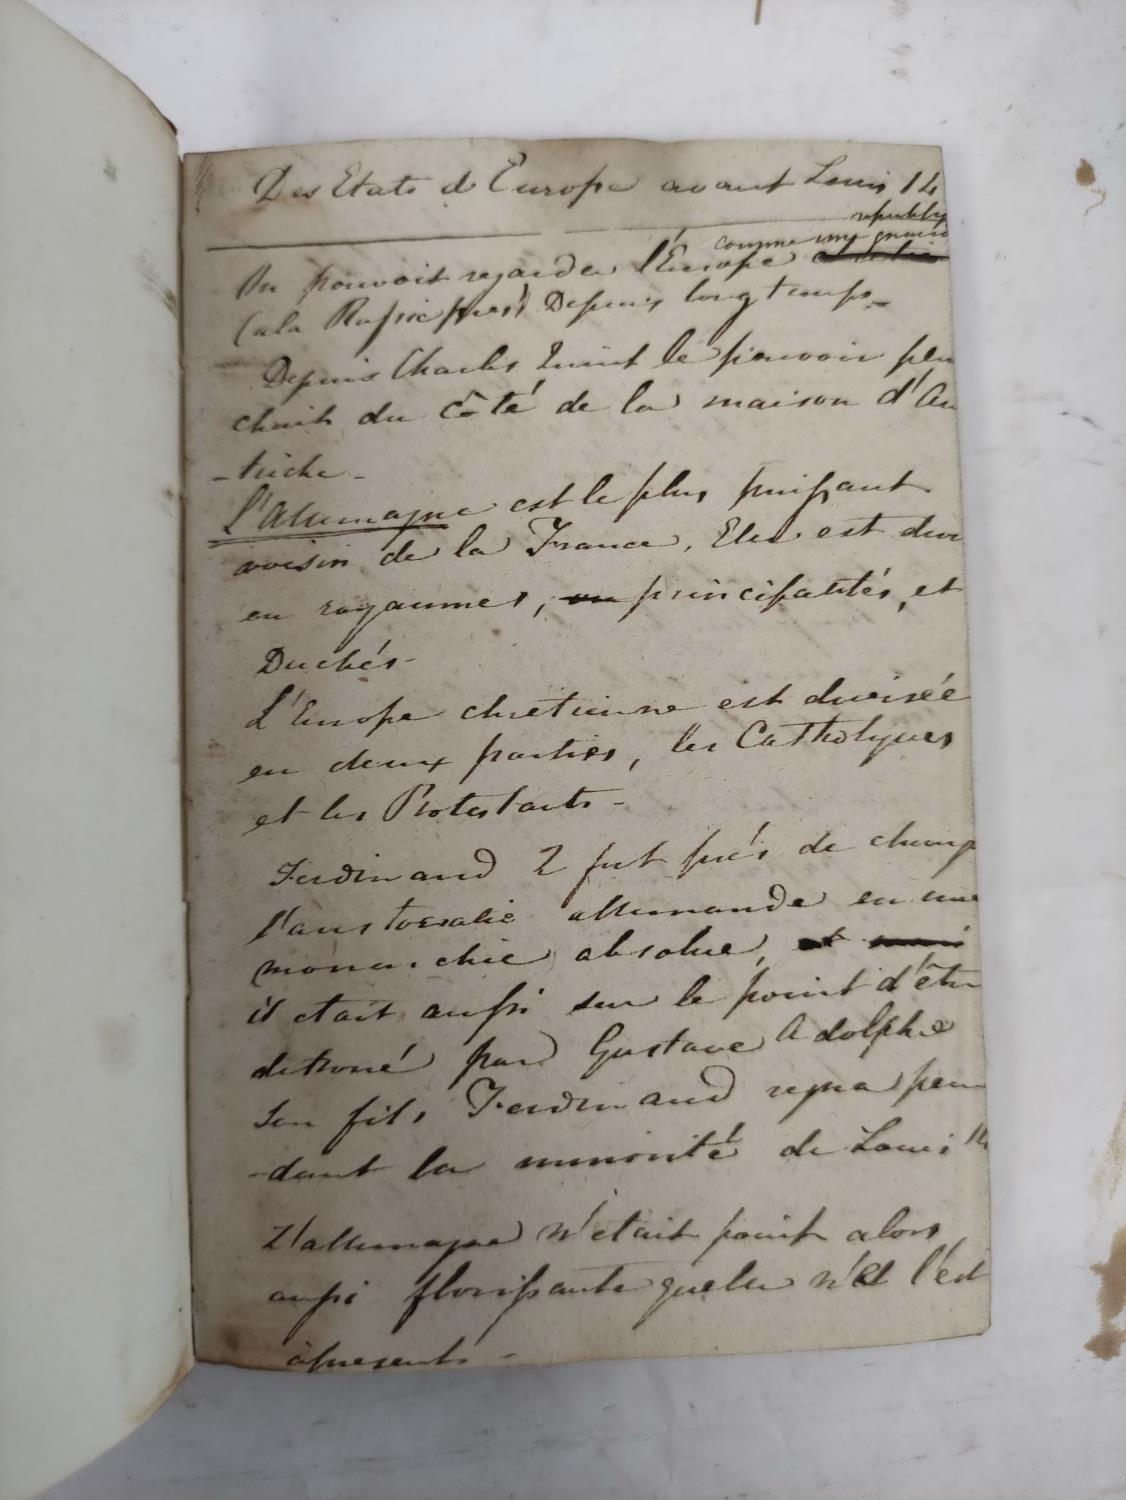 Des Etats d'Europe avant Louis 14
republy
comme une grande
On pouvoit regarder l'Europe
(à la Russie près) Depuis longtemps –
Depuis Charles Quint le pouvoir pen
chait du côté de la maison d'Au
– triche –
L'Allemagne est le plus puissant
voisin de la France, Elle est divi
en royaumes, principatités, et
Duchés –
L'Europe chretienne est divisée
en deux parties, les Catholyques
et les Protestants –
Ferdinand 2 fut près de chang
l'aristocratie allemande en une
monarchie absolue, et
il etait aussi sur le point d'être
detroné par Gustave Adolphe
Son fils Ferdinand regna pen
– dant la minorité de Louis 14
L'allemagne n'était point alors
aussi florissante quelle n'é l'est
àpresent –